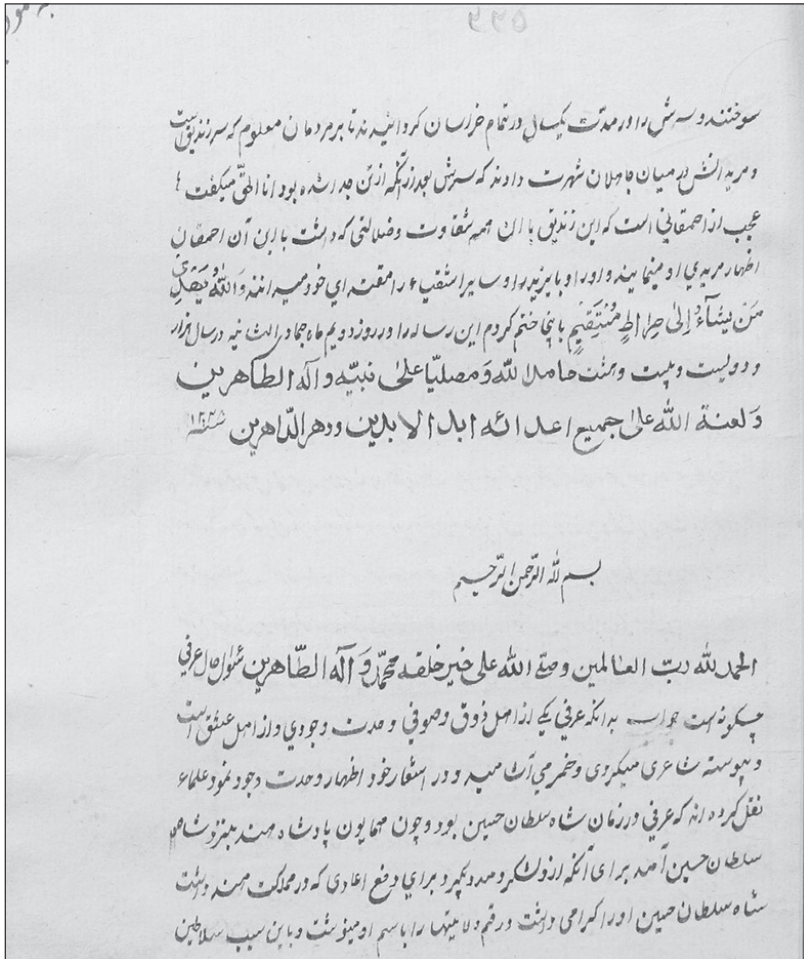 ۵۶۶
سوختند و سرش را در مدت یکسال در تمام خراسان گردانیدند تا بر مردمان معلوم که سر زندیق است
و مریدانش در میان جاهلان شهرت دادند که سرش بعد از آنکه از تن جدا شده بود انا الحق میگفت
عجب از احمقانی است که این زندیق با ان همه شقاوت و ضلالتی که داشت با این آن احمقان
اظهار مریدی او مینمایند و او را و بایزید را و سایر اشقیاء را مقتدای خود میدانند وَاللّٰهُ یَهْدِی
مَنْ یَشَآءُ إِلیٰ صِرَاطٍ مُسْتَقِیمٍ باینجا ختم کردم این رساله را در روز دویم ماه جمادی الثانیه در سال هزار
و دویست و بیست و هشت حامداً للّٰه وَمصلیّا عَلیٰ نبیّه و آله الطاهرین
وَ لعنة اللّٰه علیٰ جمیع اعدائه ابد الابدین و دهر الدّاهرین
بسم اللّٰه الرّحمن الرّحیم
الحمد للّٰه ربّ العالمین وصلی اللّٰه علی خیر خلقه محمّد وَ آله الطّاهرین سئوال حال عرفی
چگونه است جواب بدانکه عرفی یکی از اهل ذوق و صوفی وحدت وجودی و از اهل عشق است
و پیوسته شاعری میکردی و خمر می آشامید و در اشعار خود اظهار وحدت وجود نمود علماء
نقل کرده اند که عرفی در زمان شاه سلطان حسین بود و چون همایون پادشاه هند بنزد شاه
سلطان حسین آمد برای آنکه از او لشکر و مدد بگیرد برای دفع اعادی که در مملکت هند داشت
شاه سلطان حسین او را گرامی داشت و رقم ولایتها را باسم او مینوشت و باین سبب سلاطین